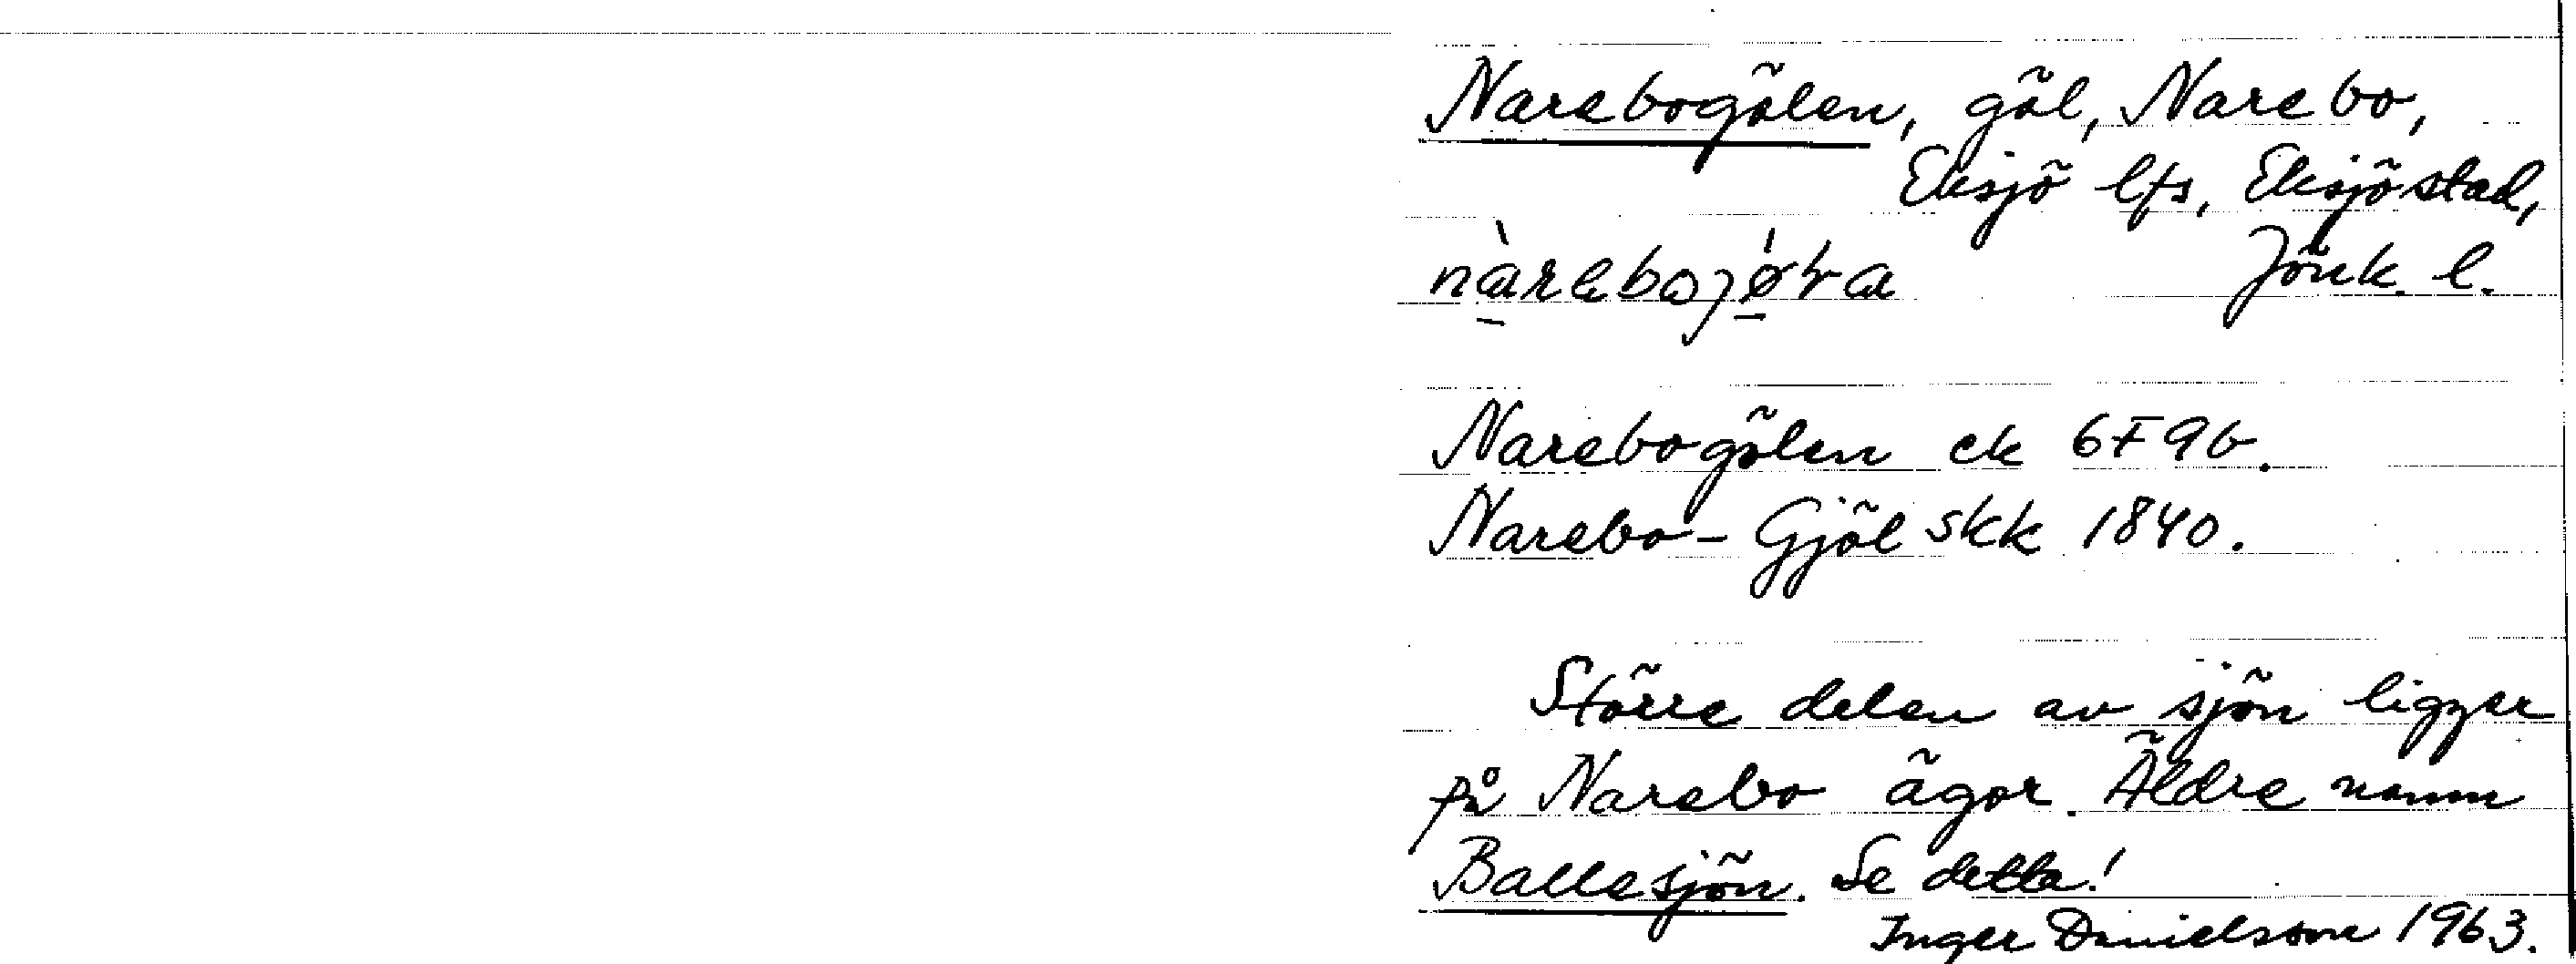 Narebogölen, göl, Narebo,
Eksjö lfs, Eksjö stad,
Jönk. l.
Narebogölen ek 6F9b.
Narebo-Gjöl skk 1840.
Större delen av sjön ligger
på Narebo ägor. Äldre namn
Ballesjön. Se detta!
Inger Danielsson 1963.